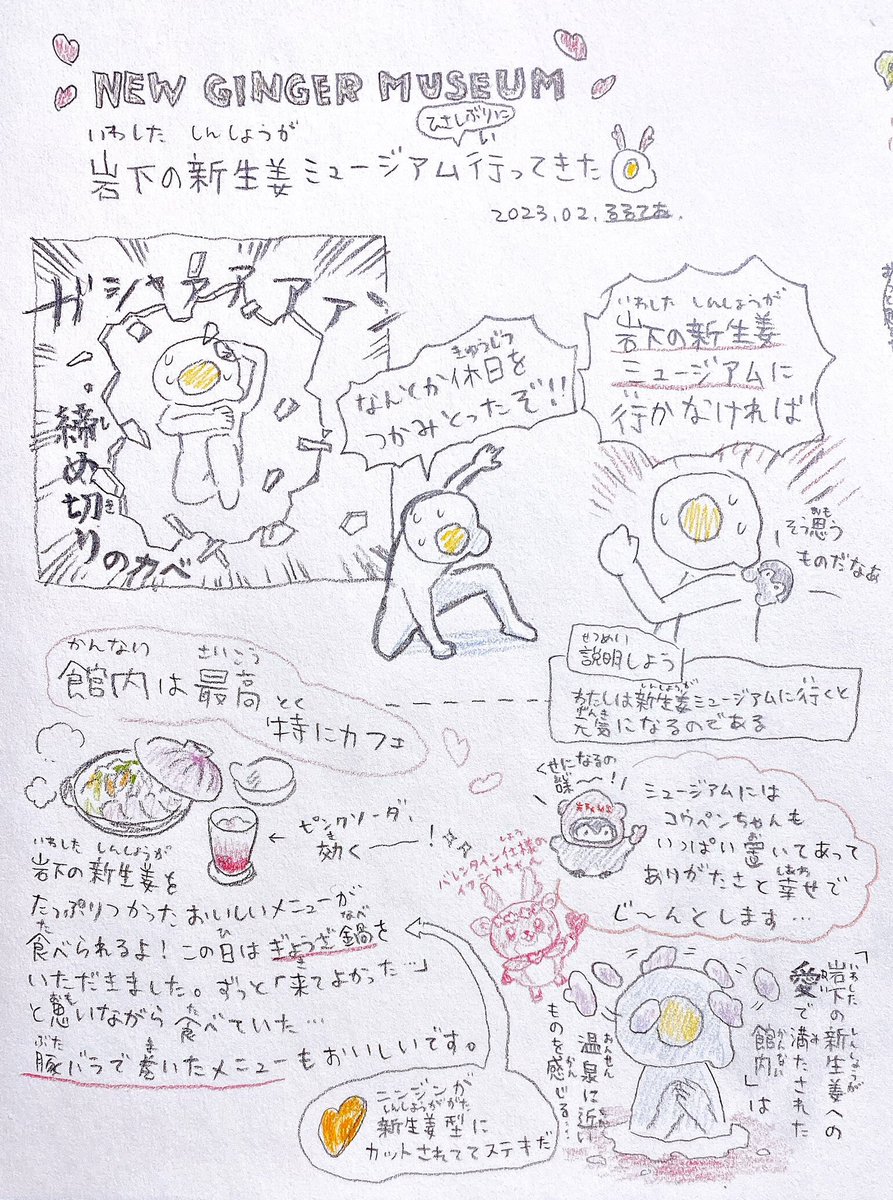 NEW GINGER MUSEUM
ひさしぶりに
いわした しんしょうが い
岩下の新生姜ミュージアム行ってきた
2023.02.るるてあ.
ガシャァァアァン
締め切りのカベ
し き
きゅうじつ
なんとか休日を
つかみとったぞ!!
いわした しんしょうが
岩下の新生姜
ミュージアムに
い
行かなければ
おも
そう思う
ものだなあ
せつめい
説明しよう
しんしょうが い
わたしは新生姜ミュージアムに行くと
げんき
元気になるのである
かんない さいこう
館内は最高
とく
特にカフェ
←ピンクソーダ、
き
効くーー!
いわした しんしょうが
岩下の新生姜を
たっぷりつかったおいしいメニューが
た ひ なべ
食べられるよ!この日はぎょうざ鍋を
き
いただきました。ずっと「来てよかった…」
おも た
と思いながら食べていた…
ぶた ま
豚バラで巻いたメニューもおいしいです。
ニンジンが
しんしょうががた
新生姜型に
カットされててステキだ
しよう
バレンタイン仕様の
イワシカちゃん
くせになるの
謎〜!
ミュージアムには
コウペンちゃんも
お
いっぱい置いてあって
しあわ
ありがたさと幸せで
じ〜んとします…
いわした しんしょうが
「岩下の新生姜への
あい み
愛で満たされた
かんない
館内」は
おんせん ちか
温泉に近い
かん
ものを感じる…